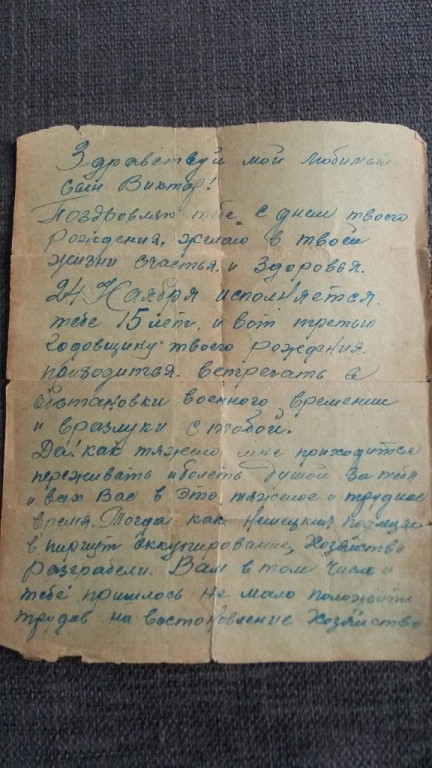 Здравствуй мой любимый
сын Виктор!
Поздровляю тебе с днем твоего
рождения, желаю в твоей
жизни счастья и здоровья.
24 Ноября исполняется
тебе 15 лет, и вот третью
годовщину твоего рождения
приходиться встречать в
обстановки военного времении
и вразлуки с тобой.
Да! как тяжело мне приходится
переживать иболеть душой за тебя
и всх Вас в это тяжелое и трудное
время. Тогда как Немецких
в оккупирование, хозяйство
разграбели. Вам в том числе и
тебе пришлось не мало положить
трудав на востоновление хозяйство